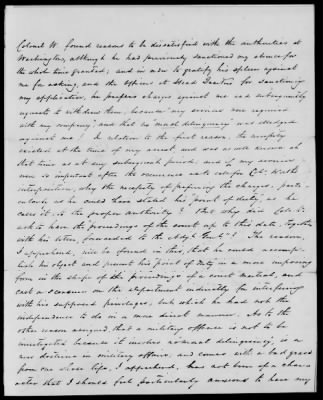 Colonel W. found reasons to be dissatisfied with the authorities at
Washington, although he had previously sanctioned my absence for
the whole time granted; and in order to gratify his spleen against
me for asking, and the Officers at Head Quarters for sanctioning
my application, he prefers charges against me and subsequently
requests to withdraw them, because "my services were required
with my company", and that his "moral delinquency" was alledged
against me". In relation to the first reason, the necessity
existed at the time of my arrest, and was as well known at
that time as at any subsequent period, and if my services
were so important after the occurrence as to call for Col.
interposition, why the necessity of preferring the charges, parti-
cularly as he could have stated his "point of duty", as he
calls it, to the proper authority? But why did Col. W.
ask to have the proceedings of the court up to this date, together
with his letter, forwarded to the Dept? The reason
I apprehend, will be found in this, that he could accomp-
lish his object and present his point of duty in a more imposing
form in the shape of the proceedings of a court martial, and
cast a censure on the department indirectly for interfering
with his supposed privileges, but which he had not the
independence to do in a more direct manner. As to the
other reason assigned that a military offence is not to be
investigated because it involves no moral delinquency, is a
new doctrine in military affairs, and comes with a bad grace
from one whose life, I apprehend, has not been of a chara-
acter that I should feel particularly anxious to have my